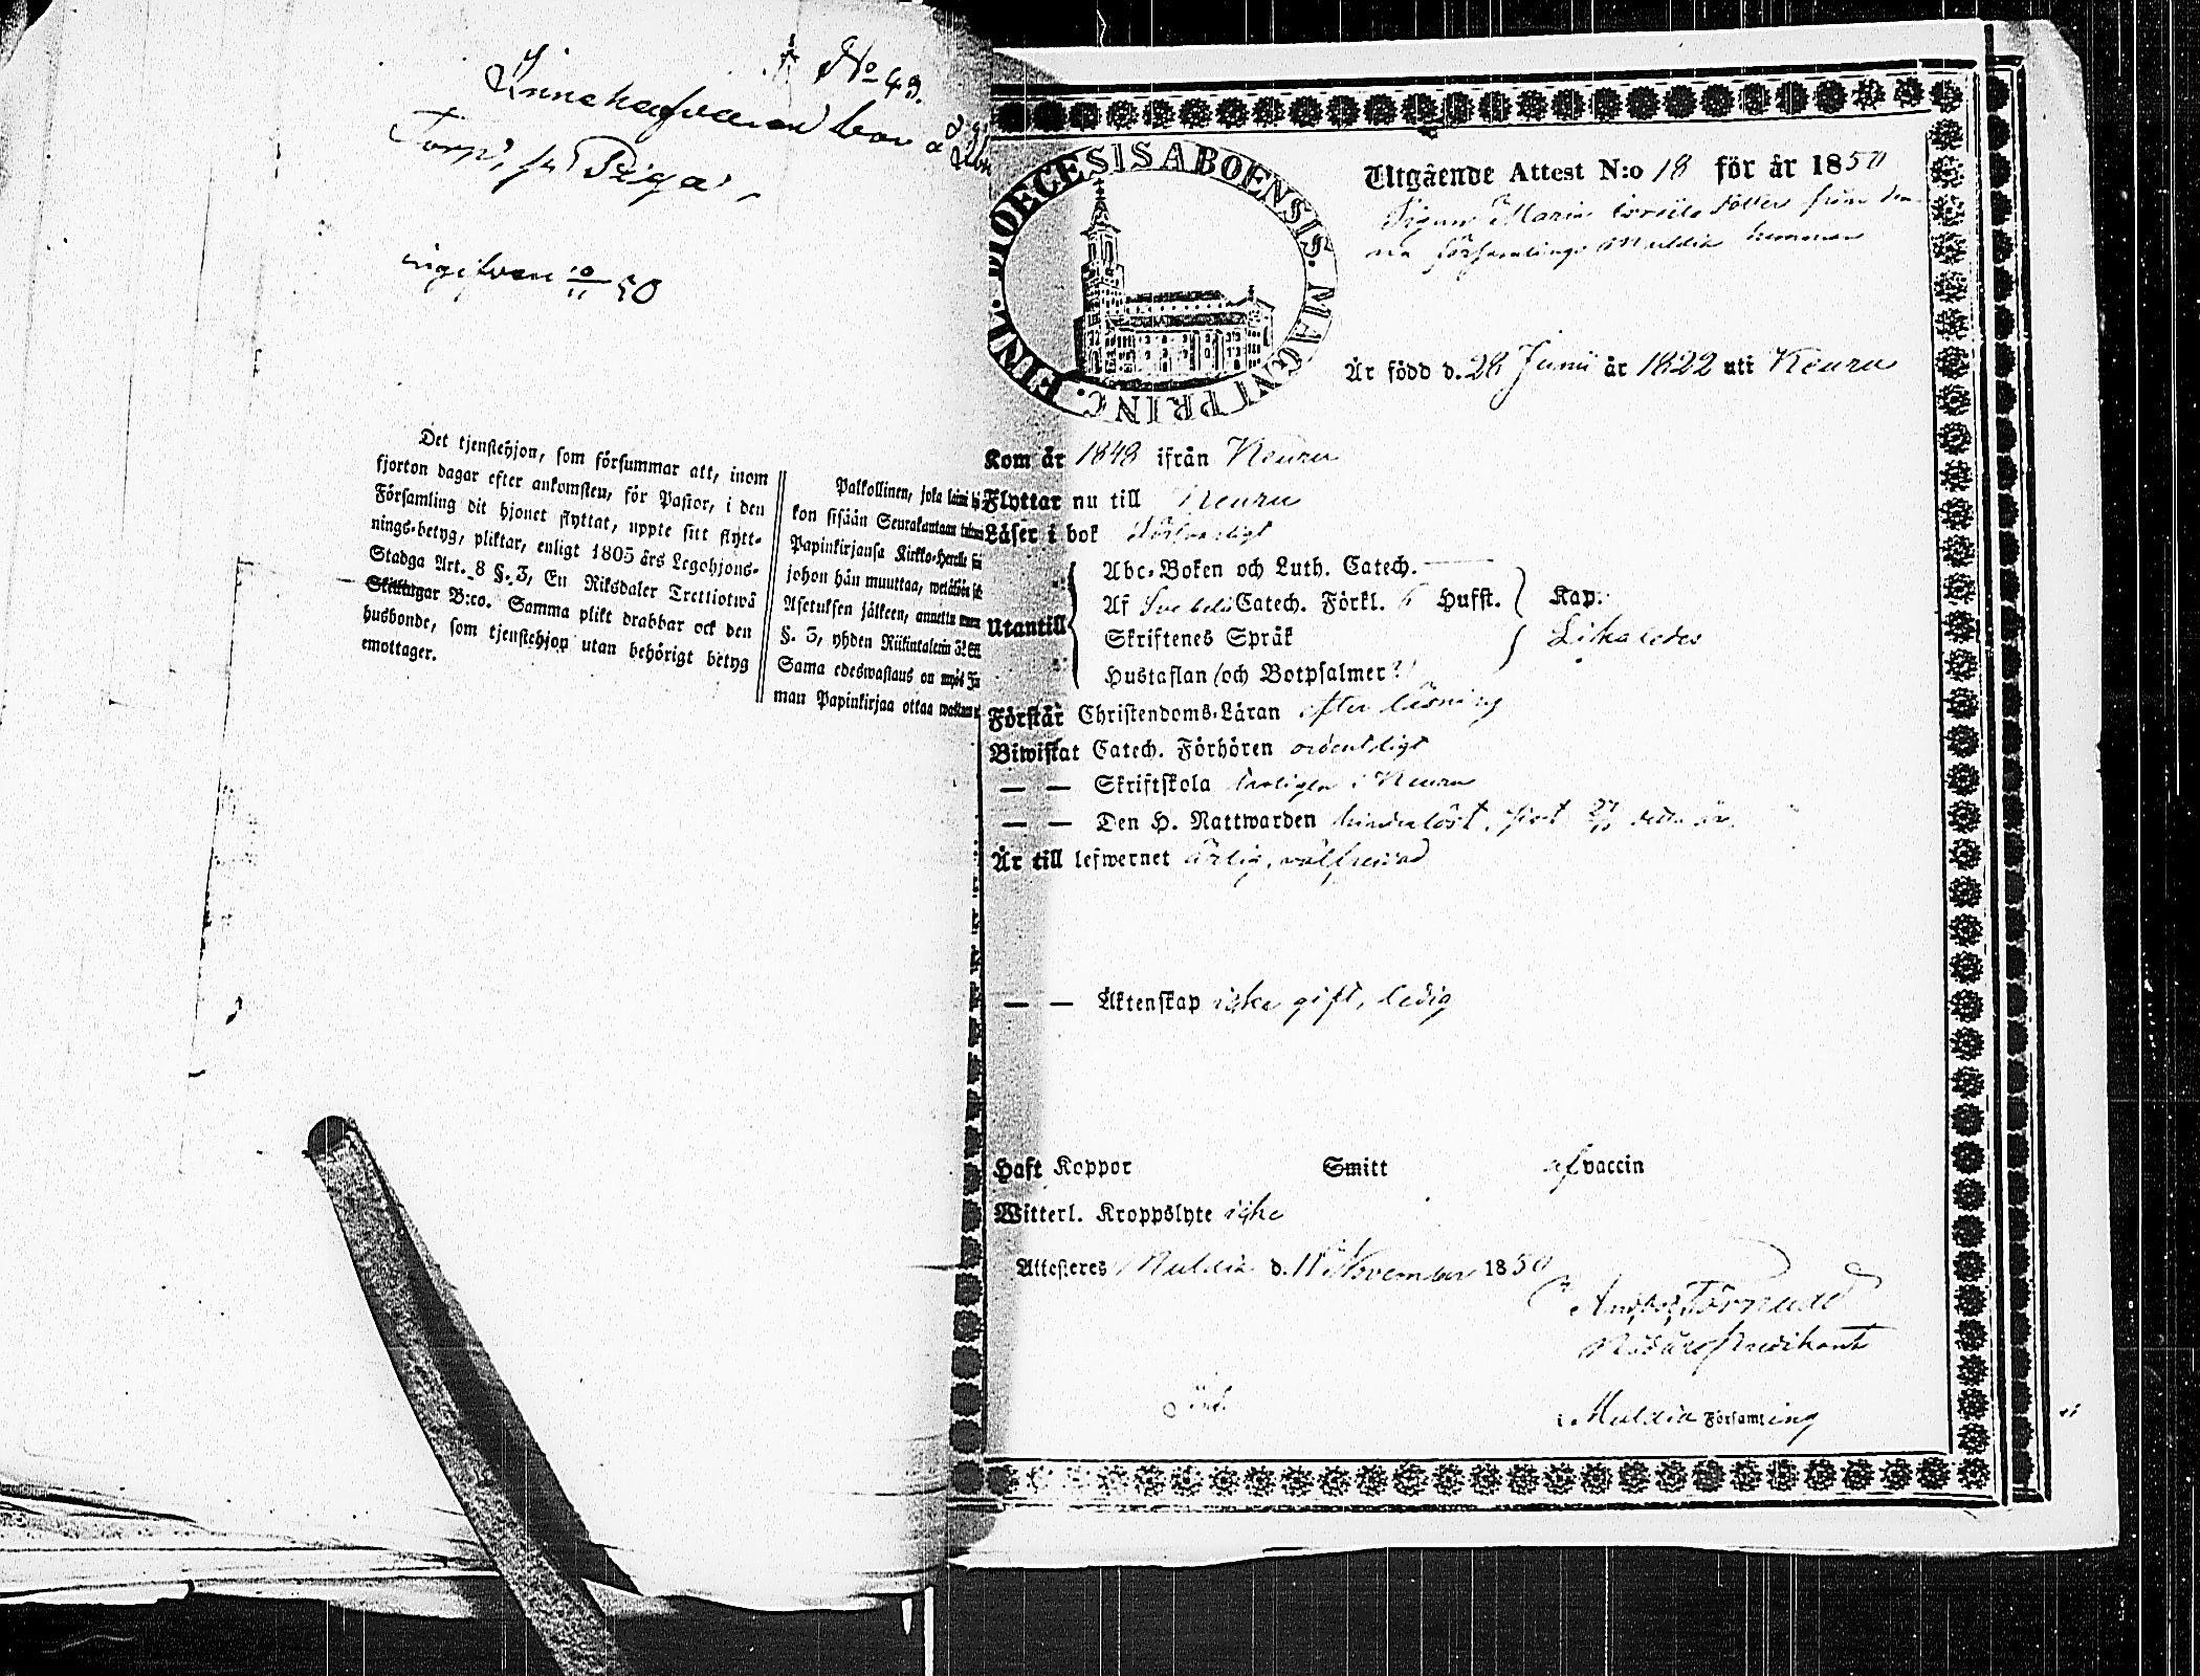 No 49.
Innehafvaren bor å
Torp, st Piga,
ingifven 10/11 50
Det tjenstehjon, som försummar att, inom
fjorton dagar efter ankomsten, för Pastor, i den
Församling dit hjonet flyttat, uppte sitt flytt-
nings-betyg, pliktar, enligt 1805 års Legohjons-
Stadga Art. 8 §. 3, En Riksdaler Trettiotwå
Skillingar B:co. Samma plikt drabbar ock den
husbonde, som tjenstehjon utan behörigt betyg
emottager.
Palkollinen, joka
kon sisään Seurakantaan
Papinkirjansa Kirkko-Herralle
johon hän muuttaa,
Asetuksen jälkeen, annettu
§. 3, yhden Riikintalerin
Sama edeswastaus on myös
man Papinkirjaa ottaa wastaan
FINL. DIOECESIS ABOENSIS. MAGNI PRINC.
Utgående Attest N:o 18 för år 1850
Pigan Maria från den
na församlings Multia hemman
Är född d. 28 Junii år 1822 uti Keuru
Kom år 1848 ifrån Keuru
Flyttar nu till Keuru
Läser i bok försvarligt
Abc-Boken och Luth. Catech.
Af Svebelii Catech. Förkl. 6 Hufst. Kap.
Utantill
Skriftenes Språk Likaledes
Hustaflan (och Botpsalmer?)
Förstår Christendoms-Läran efter läsning
Biwistat Catech. Förhören ordentligt
— — Skriftskola i Keuru
— — Den H. Nattwarden hinderlöst, sist detta år.
Är till lefwernet ärlig, välfrejdad
— — Äktenskap icke gift, ledig
Haft Koppor Smitt af vaccin
Witterl. Kroppslyte icke
Attesteres Multia d. 11 November 1850
Törnudd
Predikant
i Multia Församling